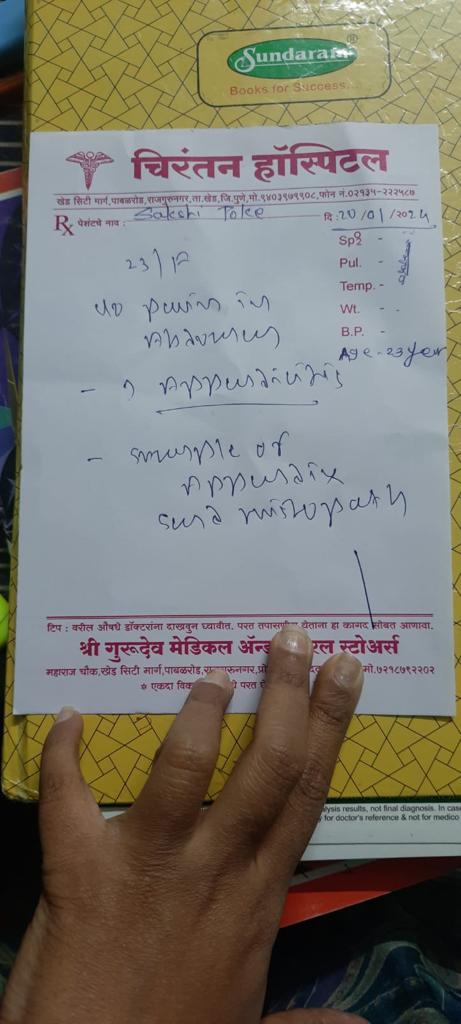 Sundaram®
Books for Success...
चिरंतन हॉस्पिटल
खेड सिटी मार्ग,पाबळरोड,राजगुरुनगर,ता.खेड,जि.पुणे,मो.९४०३९७९९०८,फोन नं.०२१३५-२२२५८७
Rx पेशंटचे नाव : Sakshi Toke दि:20/01/2024
Spo2 -
23/F Pul. -
Temp. -
c/o pain in Wt. -
Abdomen B.P. -
Age - 23 year
- ? Appendicitis
- sample of
Appendix
send histopath
टिप : वरील औषधे डॉक्टरांना दाखवुन घ्यावीत. परत तपासणीस येताना हा कागद सोबत आणावा.
श्री गुरूदेव मेडिकल ॲन्ड जनरल स्टोअर्स
महाराज चौक,खेड सिटी मार्ग,पाबळरोड, मो.७२१८७९२२०२
* एकदा परत
lysis results, not final diagnosis. In case
for doctor's reference & not for medico